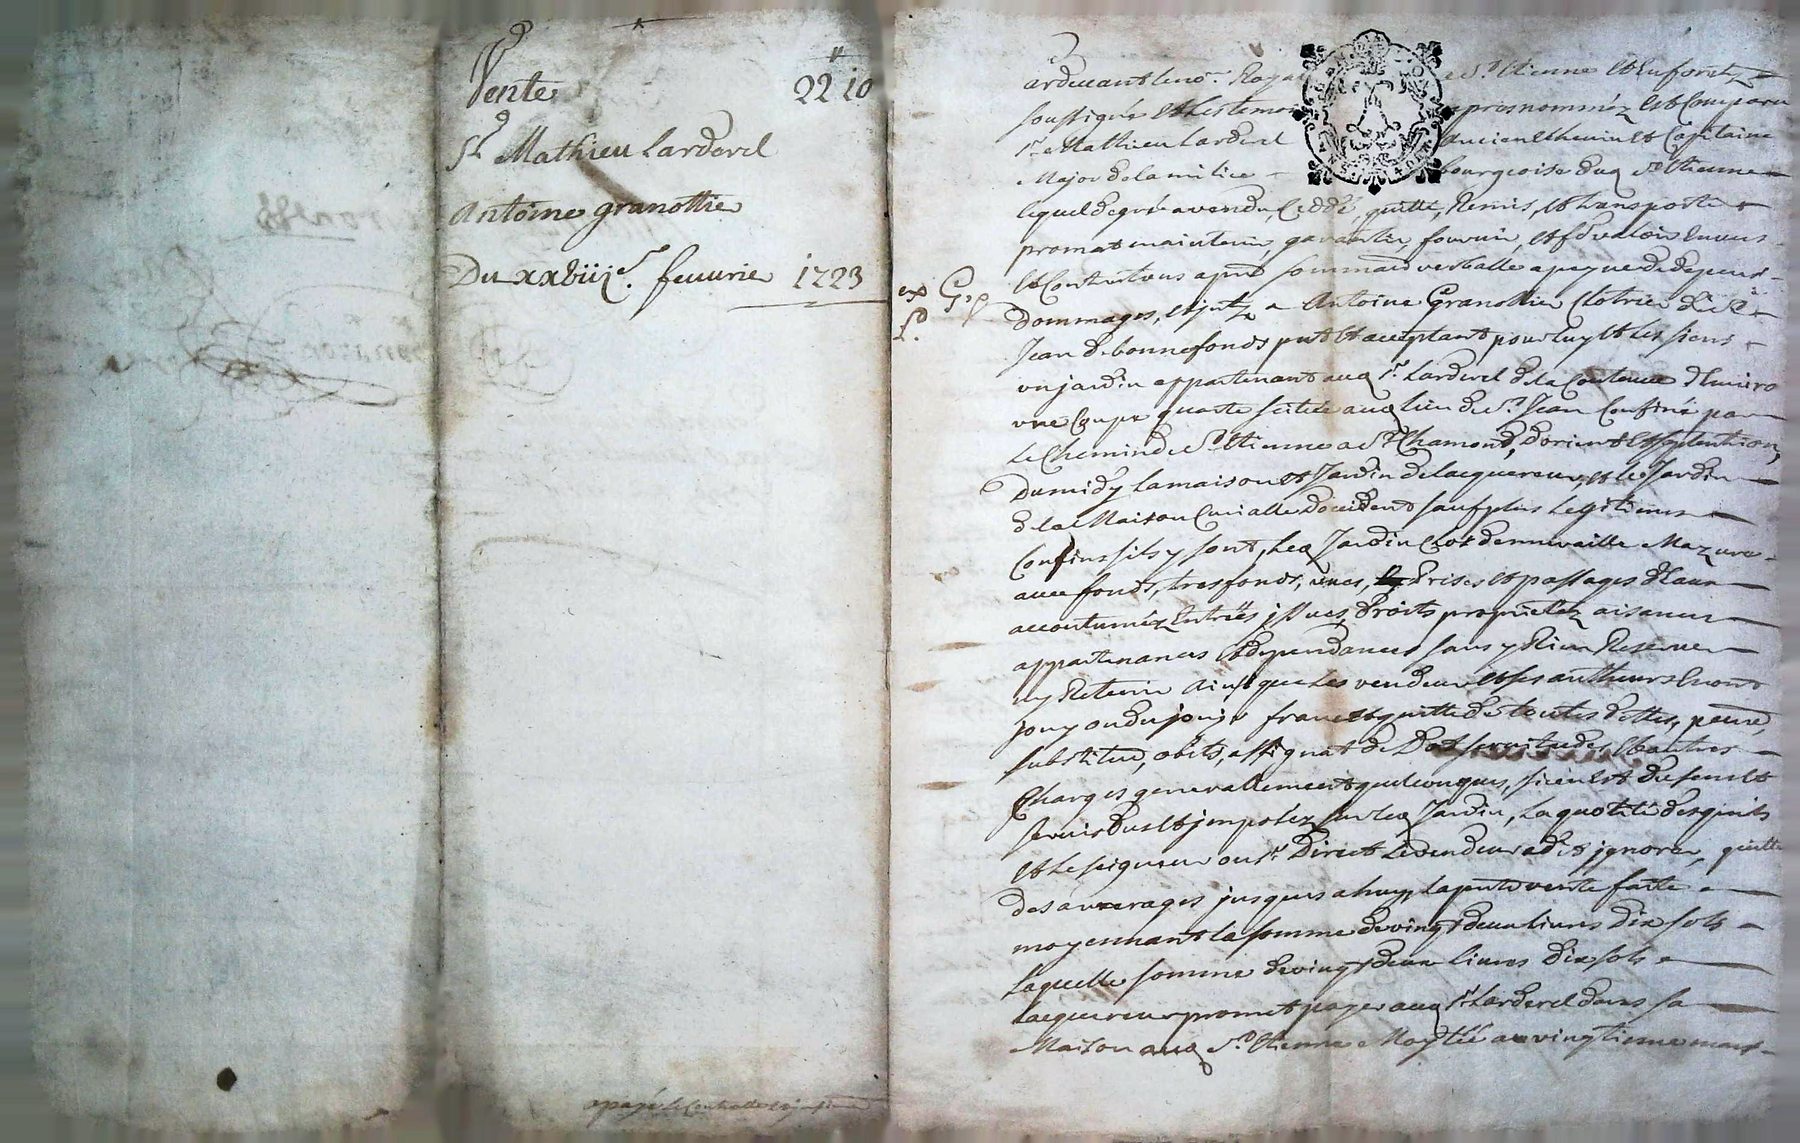 Vente 22" 10
Sr Mathieu Larderel
Antoine granottier
Du xxbiije. feuurier 1723
apayé le Controlle
ex Gr
P.
ardeuant le no.re Royal de St. Etienne et Enforetz
soussigné et les temoins apres nomméz est Comparu
sr. Mathieu Larderel ancien Echeuin et Capitaine
Major de la milice bourgeoise duq St. Etienne
lequel de gré a vendu, Ceddé, quitté, Remis, et transporté
promet maintenir, garantir, fournir, et f valoir Enuers
et Contre tous apres sommaon verballe a peyne de depens
dommages, et jntz a Antoine Granottier Clotrier de St.
Jean de bonnefonds pnt et acceptant pour luy et les siens
vn jardin appartenant auq sr. Larderel de la Contenue d'Enuiro
vne Coupe quarte scitué auq lieu de St. Jean Confiné par
Le Chemin de St. Etienne a St Chamond, d'orient et septention,
Dumidy la maison et Jardin de lacquereur, et le Jardin
de la Maison Curialle d'occident sauf plus legitimes
Confins sils y sont, Leq Jardin Clos de muraille Mazure
auec fonds, tresfonds, vues, prises et passages d'eaux
accoutuméz Entrées jssues, droits proprietez aisances
appartenances et dependances sans y Rien Reseruer
ny Retenir ainsi que les vendeur et ses autheurs En ont
jouy ou du jouir franc et quitte de toutes dettes, penon,
substituon, obits, assignat de Dot seruitudes et autres
Charges generallement quelconques, sice n'est du sens et
seruis dus et jmposez sur leq Jardin, la quotité desquels
et le seigneur ou sr. Direct le vendeur a dit jgnorer, quitte
des arrerages jusques a huy, la pnte vente faite
moyennant la somme de vingt deux liures dix sols
laquelle somme de vingt deux liures dix sols
lacquereur promet payer auq sr Larderel dans sa
Maison auq St. Etienne Moytié au vingtieme mars